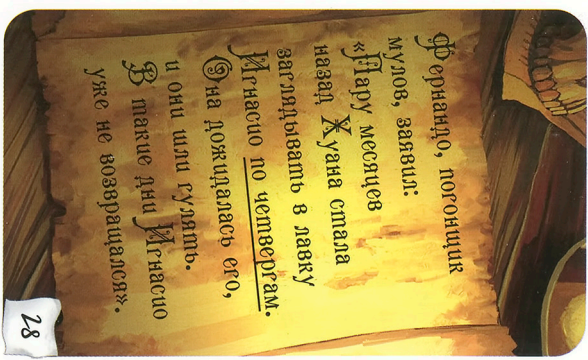 Фернандо, погонщик
мулов, заявил:
«Пару месяцев
назад Хуана стала
заглядывать в лавку
Игнасио по четвергам.
Она дожидалась его,
и они шли гулять.
В такие дни Игнасио
уже не возвращался».
28